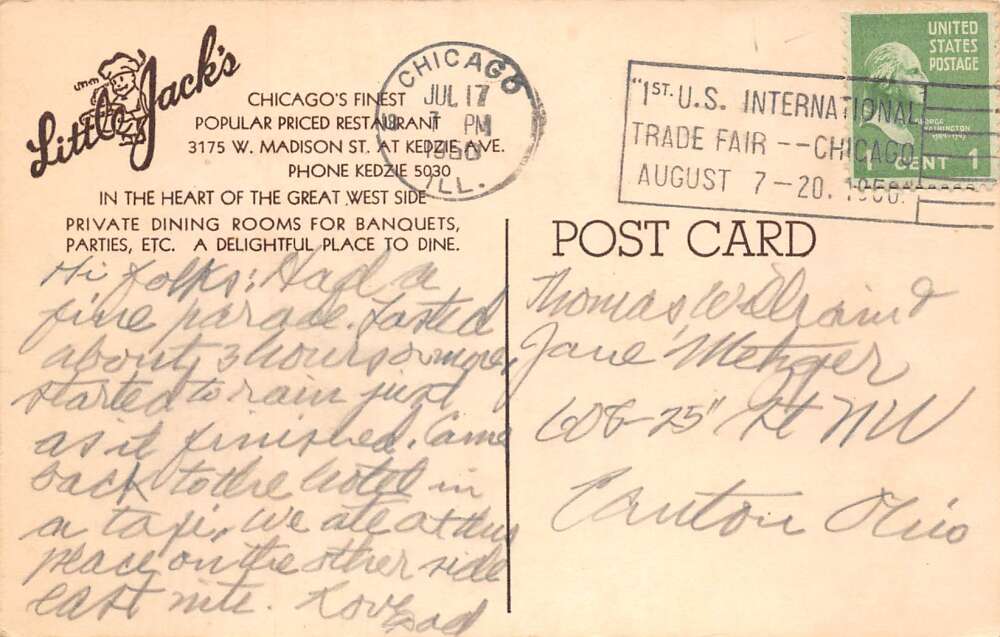 Little Jack's
CHICAGO'S FINEST
POPULAR PRICED RESTAURANT
3175 W. MADISON ST. AT KEDZIE AVE.
PHONE KEDZIE 5030
IN THE HEART OF THE GREAT WEST SIDE
PRIVATE DINING ROOMS FOR BANQUETS,
PARTIES, ETC. A DELIGHTFUL PLACE TO DINE.
CHICAGO
JUL 17
7 PM
1950
ILL.
"1ST. U.S. INTERNATIONAL
TRADE FAIR -- CHICAGO
AUGUST 7-20, 1950.
UNITED
STATES
POSTAGE
GEORGE
WASHINGTON
1 CENT 1
POST CARD
Hi Folks: Had a
fine parade. Lasted
about 3 hours or more,
started to rain just
as it finished. Came
back to the hotel in
a taxi. We ate at this
place on the other side
last nite. Love Dad
Thomas, and
Jane Metzger
608-25" St NW
Canton Ohio